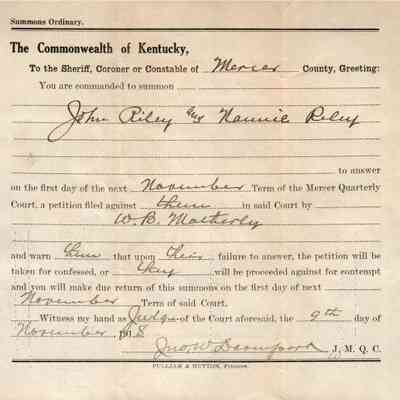 Summons Ordinary.
The Commonwealth of Kentucky,
To the Sheriff, Coroner or Constable of Mercer County, Greeting:
You are commanded to summon
John Riley and Nannie Riley
to answer
on the first day of the next November Term of the Mercer Quarterly
Court, a petition filed against them in said Court by
W. B. Matherly
and warn them that upon their failure to answer, the petition will be
taken for confessed, or they will be proceeded against for contempt
and you will make due return of this summons on the first day of next
November Term of said Court.
Witness my hand as Judge of the Court aforesaid, the 9th day of
November 1918
Jno. W. Davenport J. M. Q. C.
PULLIAM & HUTTON, Printers.